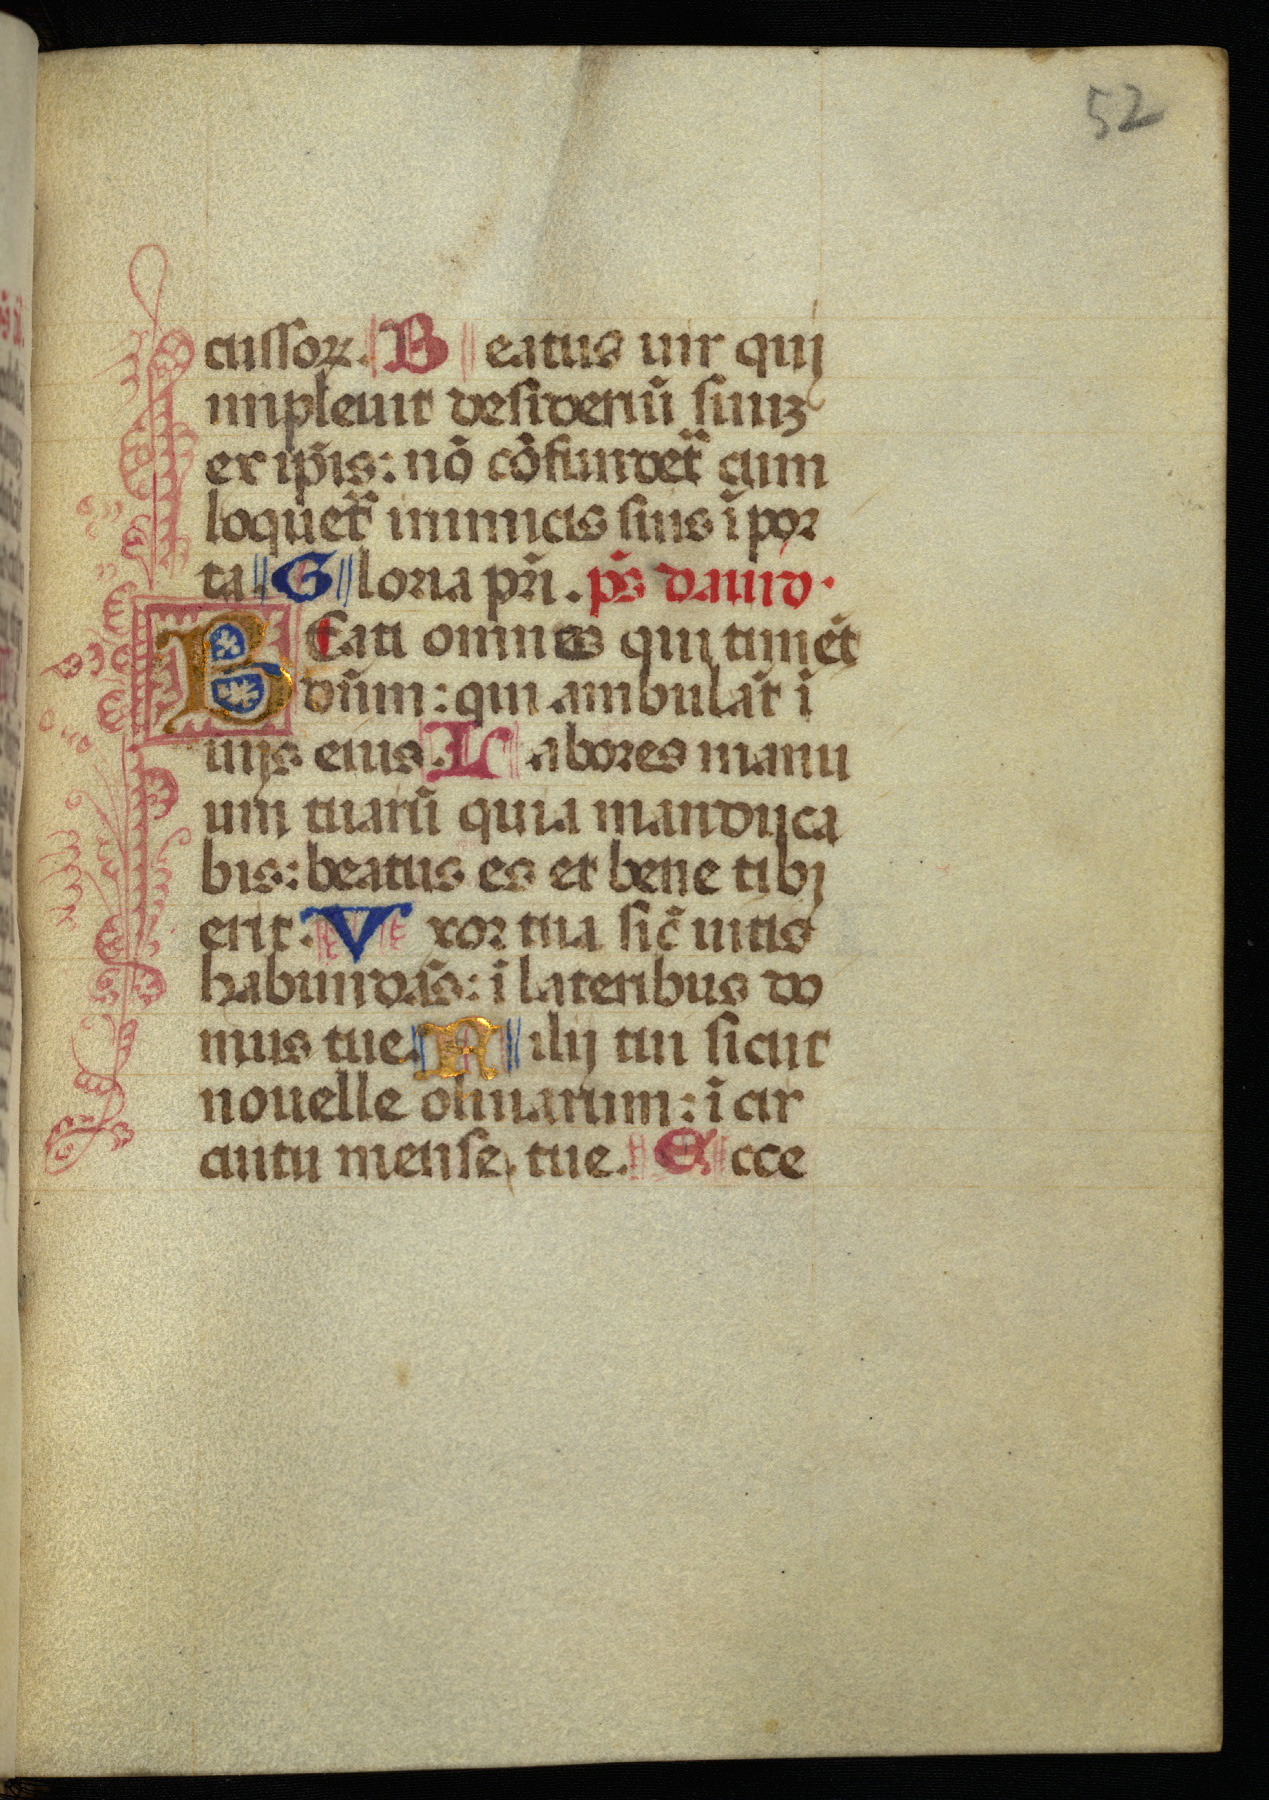 52
cussoꝝ. Beatus uir qui
impleuit desideriū suuꝫ
ex ip̄is: nō cōfundet̄ cum
loquet̄ inimicis suis ī por
ta. Gloria pr̄i. p̄s dauid.
BEati omnes qui timēt
dn̄m: qui ambulāt ī
uijs eius. Labores manu
um tuarū quia manduca
bis: beatus es et bene tibi
erit. Vxor tua sic̄ uitis
habundās: ī lateribus do
mus tue. Filij tui sicut
nouelle oliuarum: ī cir
cuitu mense tue. Ecce